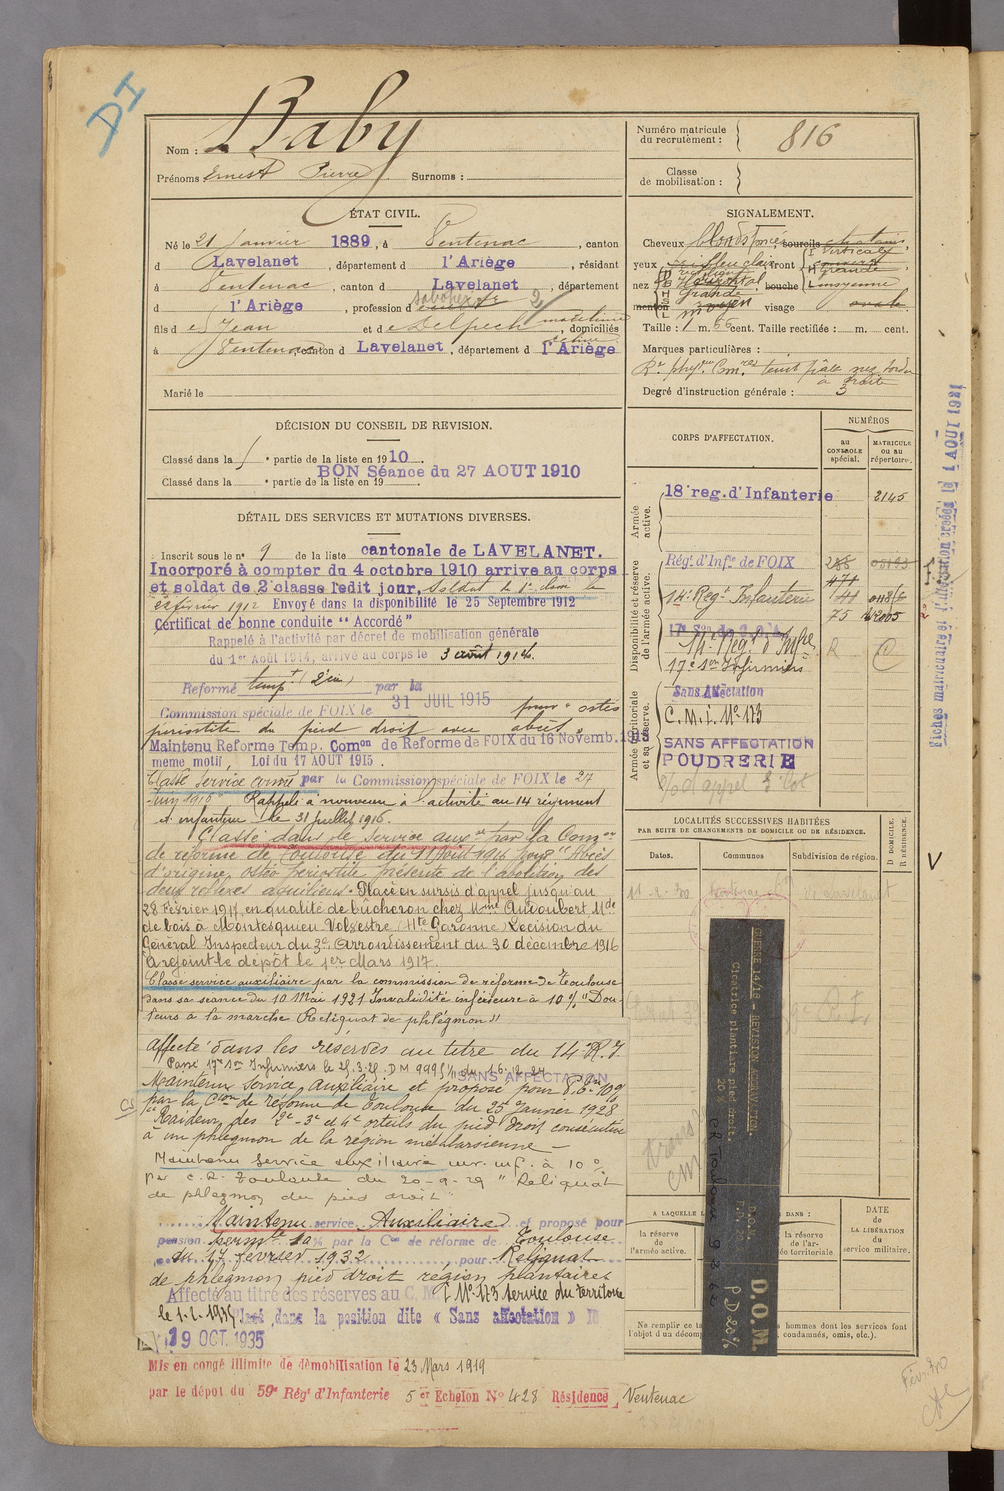 DI
Nom : Baby
Prénoms Ernest Pierre Surnoms :
Numéro matricule du recrutement : 816
Classe de mobilisation :
ÉTAT CIVIL.
Né le 21 Janvier 1889, à Ventenac, canton
d Lavelanet, département d l'Ariège, résidant
à Ventenac, canton d Lavelanet, département
d l'Ariège, profession d
fils d e Jean et d e Delpech, domiciliés
à Ventenac, canton d Lavelanet, département d l'Ariège
Marié le
SIGNALEMENT.
Cheveux blonds foncé, sourcils châtains,
yeux bleu clair front Verticale
nez Horizontal bouche moyenne
menton visage ovale
Taille : 1 m. 66 cent. Taille rectifiée : m. cent.
Marques particulières :
Rt phys. Com. teint pâle nez tordu
à droite
Degré d'instruction générale : 3
DÉCISION DU CONSEIL DE REVISION.
Classé dans la 1 partie de la liste en 1910.
BON Séance du 27 AOUT 1910
Classé dans la partie de la liste en 19
DÉTAIL DES SERVICES ET MUTATIONS DIVERSES.
Inscrit sous le n° 9 de la liste cantonale de LAVELANET.
Incorporé à compter du 4 octobre 1910 arrive au corps
et soldat de 2e classe ledit jour, Soldat de 1e classe le
février 1912 Envoyé dans la disponibilité le 25 Septembre 1912
Certificat de bonne conduite "Accordé"
Rappelé à l'activité par décret de mobilisation générale
du 1er Août 1914, arrivé au corps le 3 août 1914.
Réformé temp. (2e) par la
Commission spéciale de FOIX le 31 JUIL 1915 pour "ostéo
périostite du pied droit avec abcès"
Maintenu Réforme Temp. Comon de Reforme de FOIX du 16 Novemb. 1915
meme motif, Loi du 17 AOUT 1915.
Classé service armé par la Commission spéciale de FOIX le 27
Juin 1916 Rappelé à nouveau à l'activité au 14 régiment
d'infanterie le 31 juillet 1916.
Classé dans le service auxre par la Comon
de réforme de Toulouse du 11 Août 1916 pour "Abcès
d'origine ostéo périostite présente de l'abolition des
deux réflexes achilléens. Placé en sursis d'appel jusqu'au
28 Février 1917, en qualité de bûcheron chez Mme Audoubert Mde
de bois à Montesquieu Volvestre (Hte Garonne) Décision du
Général Inspecteur du 3e Arrondissement du 30 décembre 1916
A rejoint le dépôt le 1er Mars 1917.
Classé service auxiliaire par la commission de réforme de Toulouse
dans sa séance du 10 Mai 1921 Invalidité inférieure à 10 % "Dou-
leurs à la marche Reliquat de phlegmon"
Affecté dans les réserves au titre du 14e R.I.
Passé 17e Son Infirmiers le 25.3.25. DM 9995 1/11 du 16-12-24
SANS AFFECTATION
Maintenu service auxiliaire et proposé pour P.t. 10%
par la Cion de réforme de Toulouse du 25 Janvier 1928
"Raideur des 2e-3e et 4e orteils du pied droit consécutive
à un phlegmon de la région métatarsienne –
Maintenu Service auxiliaire inv. inf. à 10%
par C.R. Toulouse du 20-9-29 "Reliquat
de phlegmon du pied droit"
Maintenu service Auxiliaire et proposé pour
pension permte 10% par la Con de réforme de Toulouse
du 17 février 1932 pour Reliquat
de phlegmon pied droit région plantaire
Affecté au titre des réserves au C. M. I N°173 service du territoire
le 1-2-1934 Placé dans la position dite « Sans affectation »
le 19 OCT. 1935
Mis en congé illimité de démobilisation le 23 Mars 1919
par le dépôt du 59e Régt d'Infanterie 5er Echelon N° 428 Résidence Ventenac
CORPS D'AFFECTATION.
NUMÉROS
au CONTROLE spécial.
MATRICULE ou au répertoire.
Armée active.
18e reg. d'Infanterie 2145
Disponibilité et réserve de l'armée active.
Régt d'Infie de FOIX
14e Régt Infanterie
75
14e Régt d'Infie R C
17e Son Infirmiers
Armée territoriale et sa réserve.
Sans Affectation
C.M.I. N°173
SANS AFFECTATION
POUDRERIE
LOCALITÉS SUCCESSIVES HABITÉES
PAR SUITE DE CHANGEMENTS DE DOMICILE OU DE RÉSIDENCE.
Dates. Communes Subdivision de région.
D DOMICILE.
R RÉSIDENCE.
V
GUERRE 14/18 – REVISION AGGRAVATION.
Cicatrice plantaire pied droit.
20 %
D.O.M.
P D 20%
A LAQUELLE
DANS :
la réserve de l'armée active.
la réserve de l'armée territoriale
DATE de LA LIBÉRATION du service militaire.
Ne remplir ce
hommes dont les services font
l'objet d'un décomp
condamnés, omis, etc.).